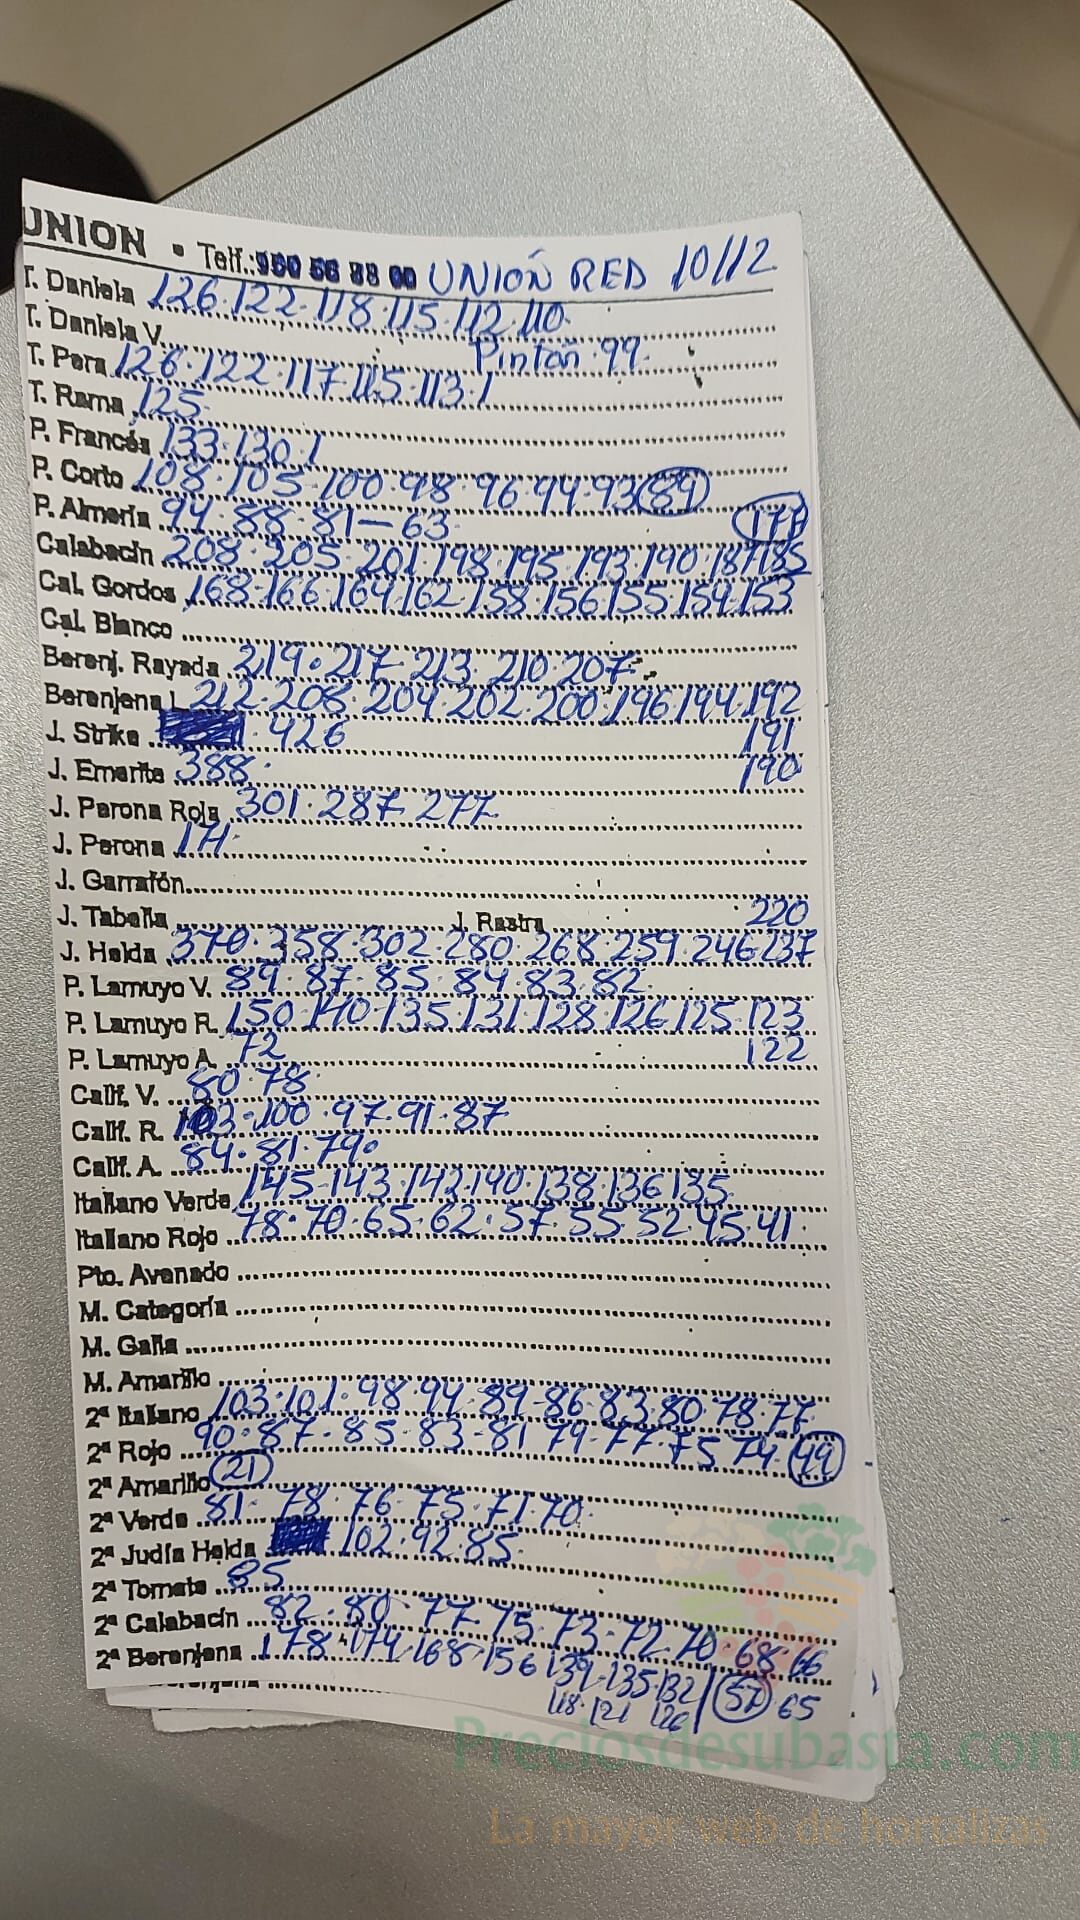 UNION • Telf.: 950 56 88 00 UNIOÑ RED 10/12
T. Daniela 126·122·118·115·112·110·
T. Daniela V. Pintoñ·99·
T. Pera 126·122·117·115·113·1
T. Rama 125·
P. Francés 133·130·1
P. Corto 108·105·100·98·96·94·93 89
P. Almería 94·88·81—63· 177
Calabacín 208·205·201·198·195·193·190·187·185
Cal. Gordos 168·166·164·162·158·156·155·154·153
Cal. Blanco
Berenj. Rayada 219·217·213·210·207·
Berenjena L 212·208·204·202·200·196·194·192
J. Strike ·426 191
J. Emerite 388· 190
J. Perona Roja 301·287·277
J. Perona
J. Garrafón
J. Tabella J. Rastra 220
J. Helda 370·358·302·280·268·259·246·237
P. Lamuyo V. 89·87·85·84·83·82·
P. Lamuyo R. 150·140·135·131·128·126·125·123
P. Lamuyo A. 72 122
Calif. V. 80·78·
Calif. R. 103·100·97·91·87
Calif. A. 84·81·79·
Italiano Verde 145·143·142·140·138·136·135
Italiano Rojo 78·70·65·62·57·55·52·45·41·
Pto. Avenado
M. Categoría
M. Galia
M. Amarillo
2ª Italiano 103·101·98·94·89·86·83·80·78·77
2ª Rojo 90·87·85·83·81·79·77·75·74· 49
2ª Amarillo 21
2ª Verde 81·78·76·75·71·70·
2ª Judía Helda 102·92·85·
2ª Tomate 85
2ª Calabacín 82·80·77·75·73·72·70·68·66
2ª Berenjena 178·174·168·156·139·135·132 57 65
118·121·126
Preciosdesubasta.com
La mayor web de hortalizas